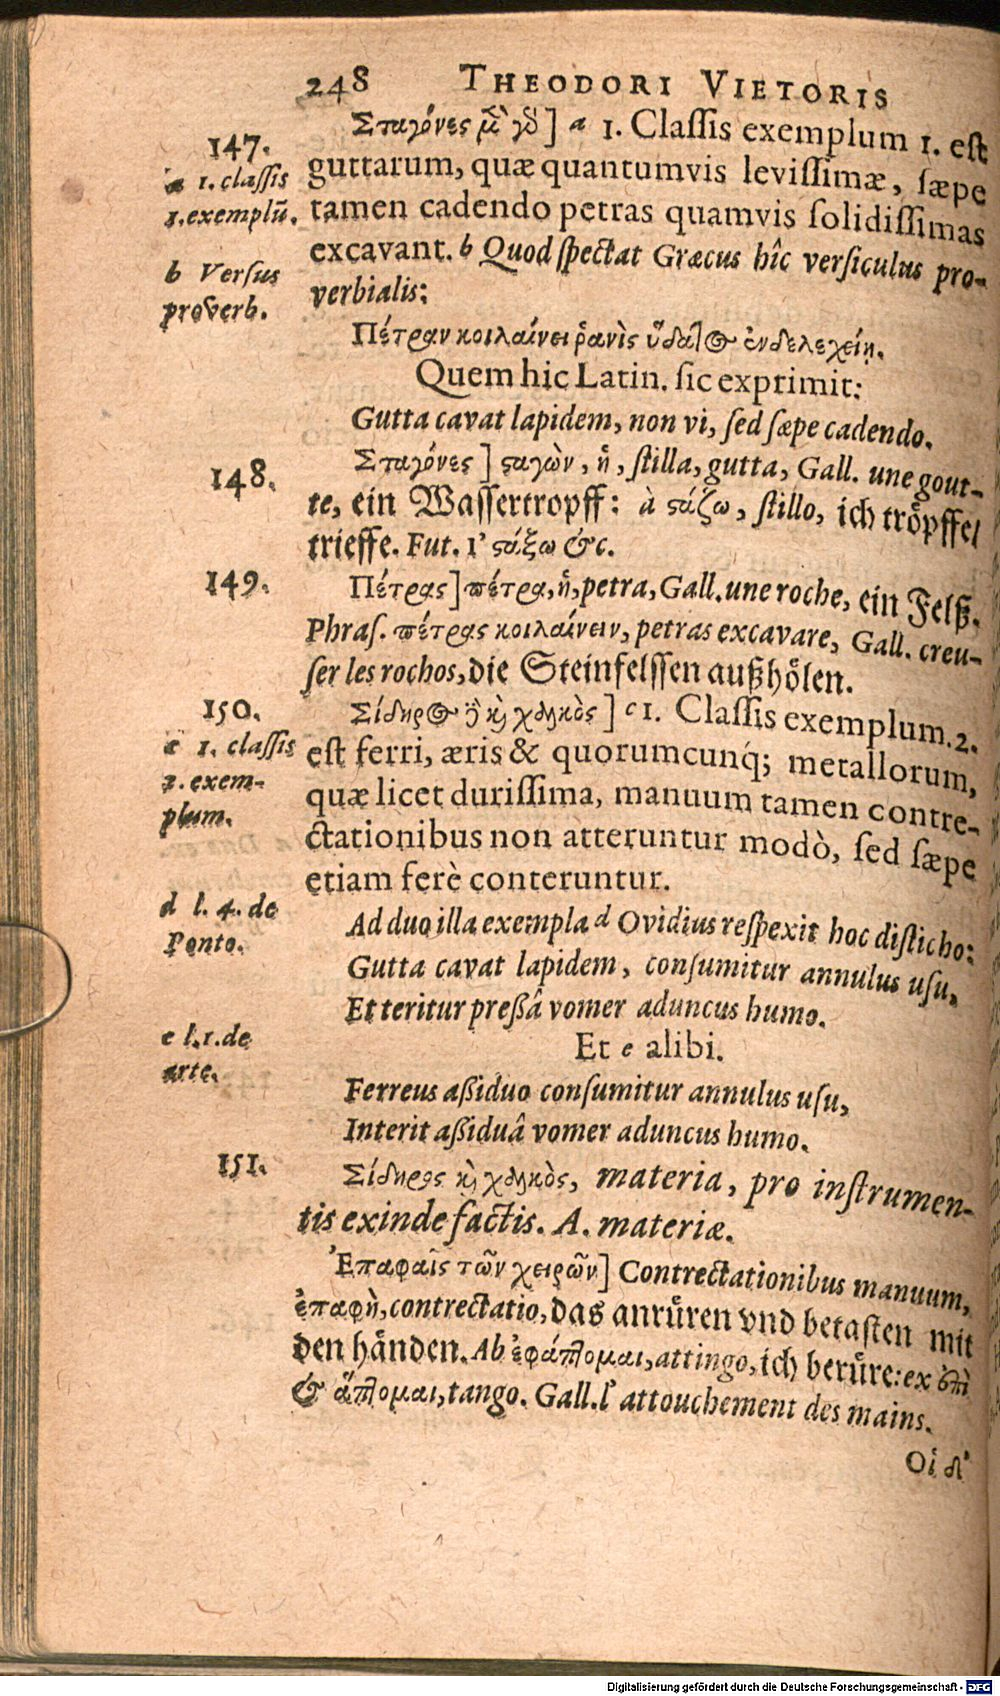 248 THEODORI VIETORIS
147.
Σταγόνες μὲν γὸ] a 1. Claſſis exemplum 1. eſt
a 1. claſſis
guttarum, quæ quantumvis leviſſimæ, ſæpe
1. exemplũ.
tamen cadendo petras quamvis ſolidiſſimas
excavant. b Quod ſpectat Græcus hîc verſiculus pro-
b Verſus
proverb.
verbialis:
Πέτραν κοιλαίνει ῥανὶς ὕδατος ἐνδελεχείῃ.
Quem hic Latin. ſic exprimit:
Gutta cavat lapidem, non vi, ſed ſæpe cadendo.
148.
Σταγόνες] ςαγὼν, ἡ, ſtilla, gutta, Gall. une gout-
te, ein Waſſertropff: à ςάζω, ſtillo, ich tröpffe/
trieffe. Fut. 1' ςάξω &c.
149.
Πέτρας] πέτρα, ἡ, petra, Gall. une roche, ein Felß.
Phraſ. πέτρας κοιλαίνειν, petras excavare, Gall. creu-
ſer les rochos, die Steinfelſſen außhölen.
150.
Σίδηρος ἢ καὶ χαλκὸς] c 1. Claſſis exemplum. 2.
c 1. claſſis
est ferri, æris & quorumcunq́; metallorum,
2. exem-
plum.
quæ licet duriſſima, manuum tamen contre-
ctationibus non atteruntur modò, ſed ſæpe
etiam ferè conteruntur.
d l. 4. de
Ponto.
Ad duo illa exempla d Ovidius reſpexit hoc diſticho:
Gutta cavat lapidem, conſumitur annulus uſu,
Et teritur preßâ vomer aduncus humo.
e l. 1. de
arte.
Et e alibi.
Ferreus aßiduo conſumitur annulus uſu,
Interit aßiduâ vomer aduncus humo.
151.
Σίδηρος καὶ χαλκὸς, materia, pro inſtrumen-
tis exinde factis. A. materiæ.
Ἐπαφαῖς τῶν χειρῶν] Contrectationibus manuum,
ἐπαφὴ, contrectatio, das anrüren vnd betaſten mit
den händen. Ab ἐφάπτομαι, attingo, ich berüre: ex ἐπὶ
& ἅπτομαι, tango. Gall. l' attouchement des mains.
Οἱ δ'
Digitalisierung gefördert durch die Deutsche Forschungsgemeinschaft - DFG